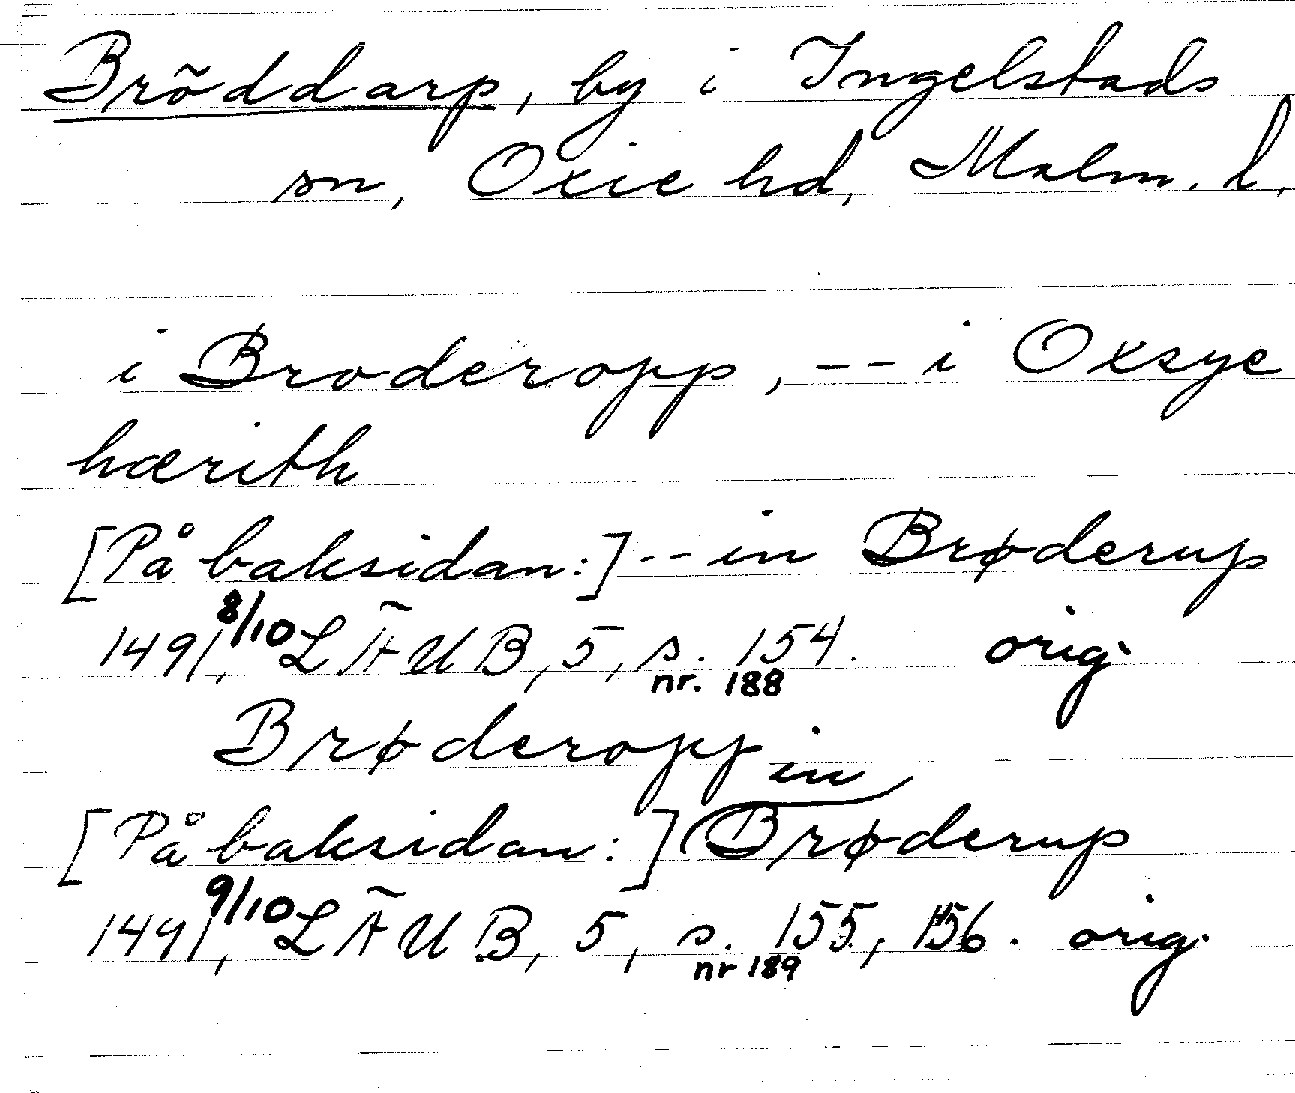 Bröddarp, by i Ingelstads
sn, Oxie hd, Malm. l.
i Broderopp, -- i Oxsye
hærith
[På baksidan:] -- in Brøderup
1491, 8/10 LÄUB, 5, s. 154. orig.
nr. 188
Brøderopp
[På baksidan:] in Brøderup
1491, 9/10 LÄUB, 5, s. 155, 156. orig.
nr 189